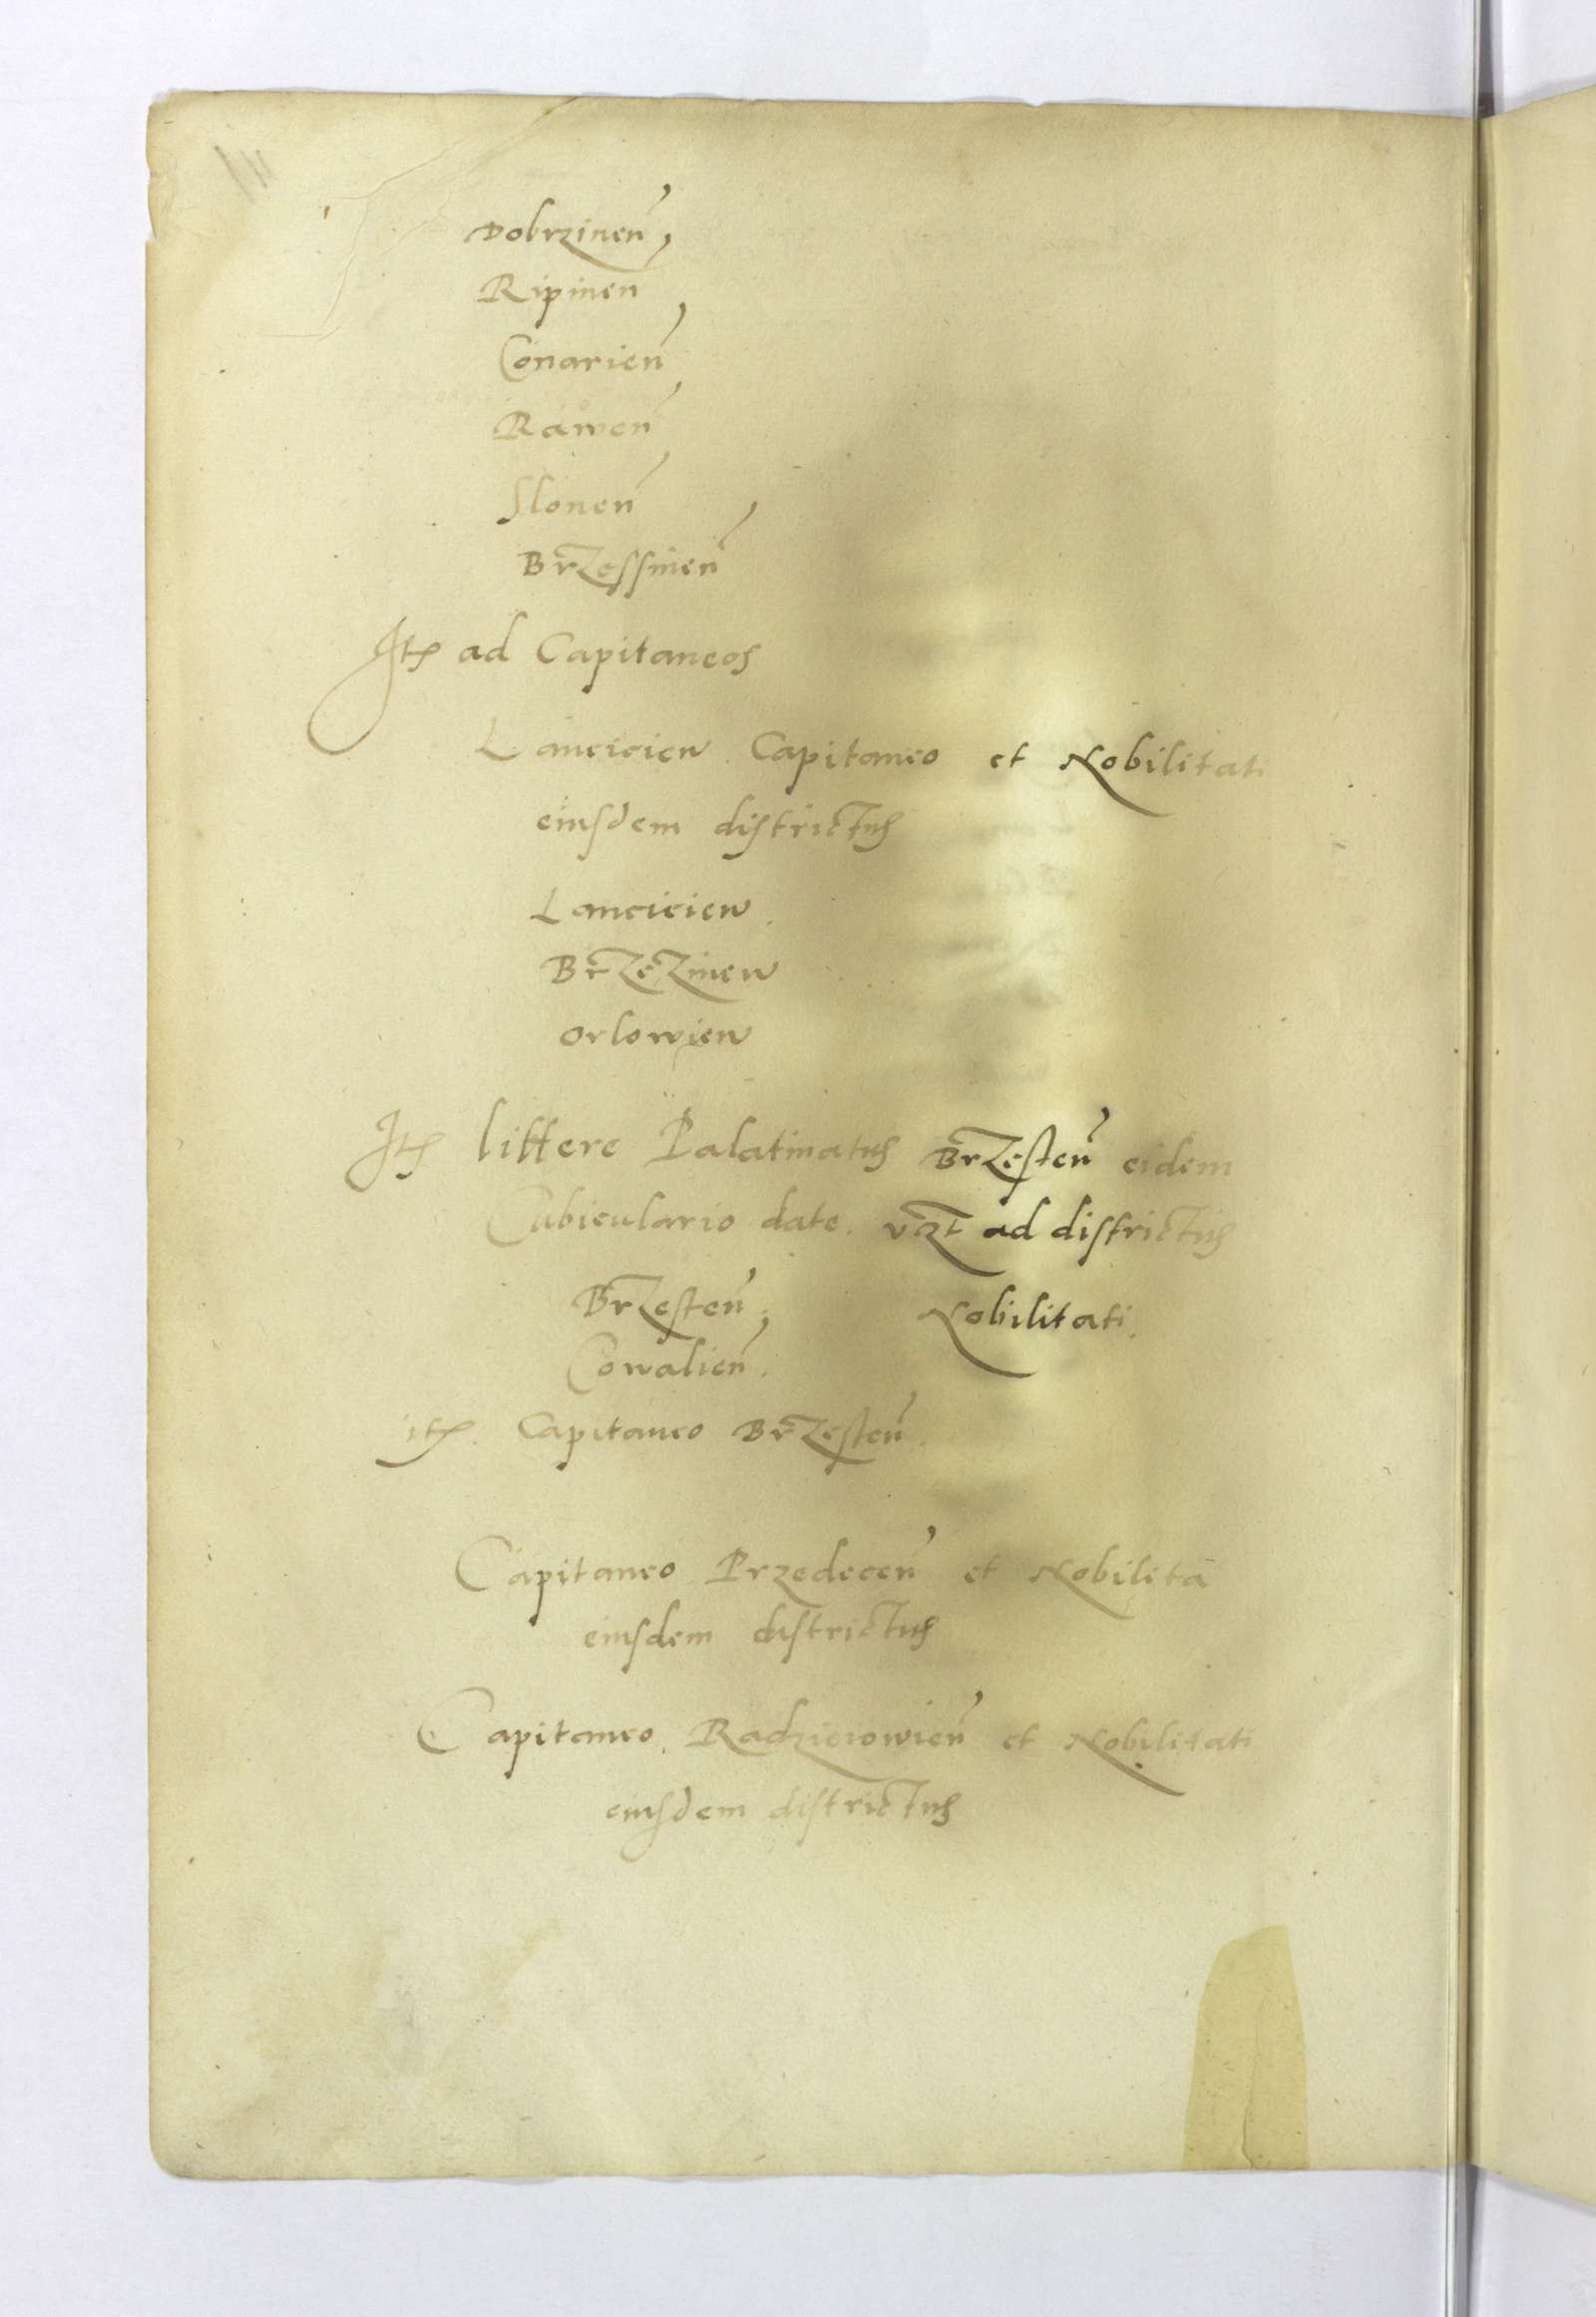 Dobrzinen̄
Ripinen
Conarien̄
Rawen̄
Slonen̄
Brzessinen̄
Itꝫ ad Capitaneos
Lancicien Capitaneo et Nobilitati
eiusdem districtus
Lancicien
Brzezinen
Orlowien
Itꝫ littere Palatinatus Brzesten̄ eidem
Cubiculario date. vꝫt ad districtus
Brzesten̄ Nobilitati
Cowalien̄.
itꝫ Capitaneo Brzesten̄
Capitaneo Przedecen̄ et Nobilita
eiusdem districtus
Capitaneo Radzieiowien̄ et Nobilitati
eiusdem districtus